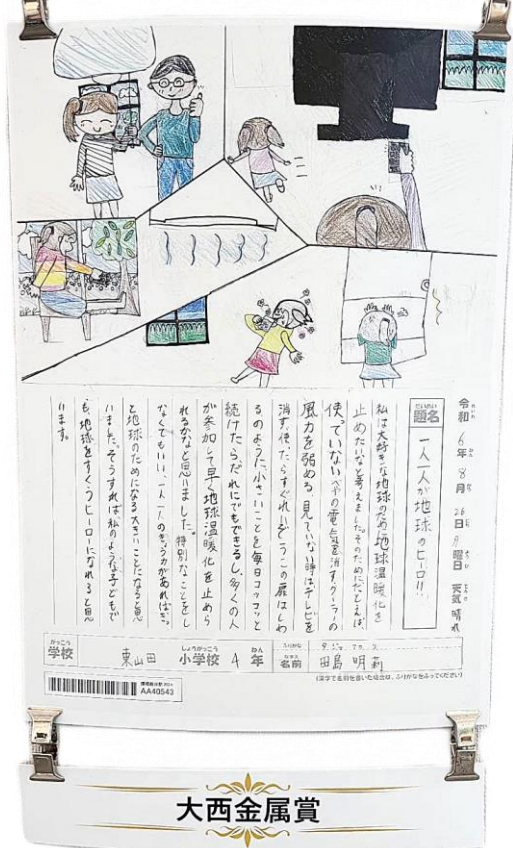 令和6年8月26日月曜日 天気 晴れ
れいわ ねん がつ にち ようび てんき
だいめい
題名
一人一人が地球のヒーロー!!
私は大好きな地球のため地球温暖化を
止めたいなと考えました。そのためにたとえば、
使っていないへやの電気を消す、クーラーの
風力を弱める、見ていない時はテレビを
消す、使ったらすぐれいぞうこの扉はしめ
るのように、小さいことを毎日コツコツと
続けたらだれにでもできるし、多くの人
が参加して早く地球温暖化を止めら
れるかなと思いました。特別なことをし
なくてもいい、一人一人のきょう力があればきっ
と地球のためになる大きいことになると思
いました。そうすれば私のような子どもで
も、地球をすくうヒーローになれると思
います。
がっこう しょうがっこう ねん
学校 東山田 小学校 4年
ふりがな
なまえ
名前 田島 明莉
(漢字で名前を書いた場合は、ふりがなをふってください)
AA40543
大西金属賞